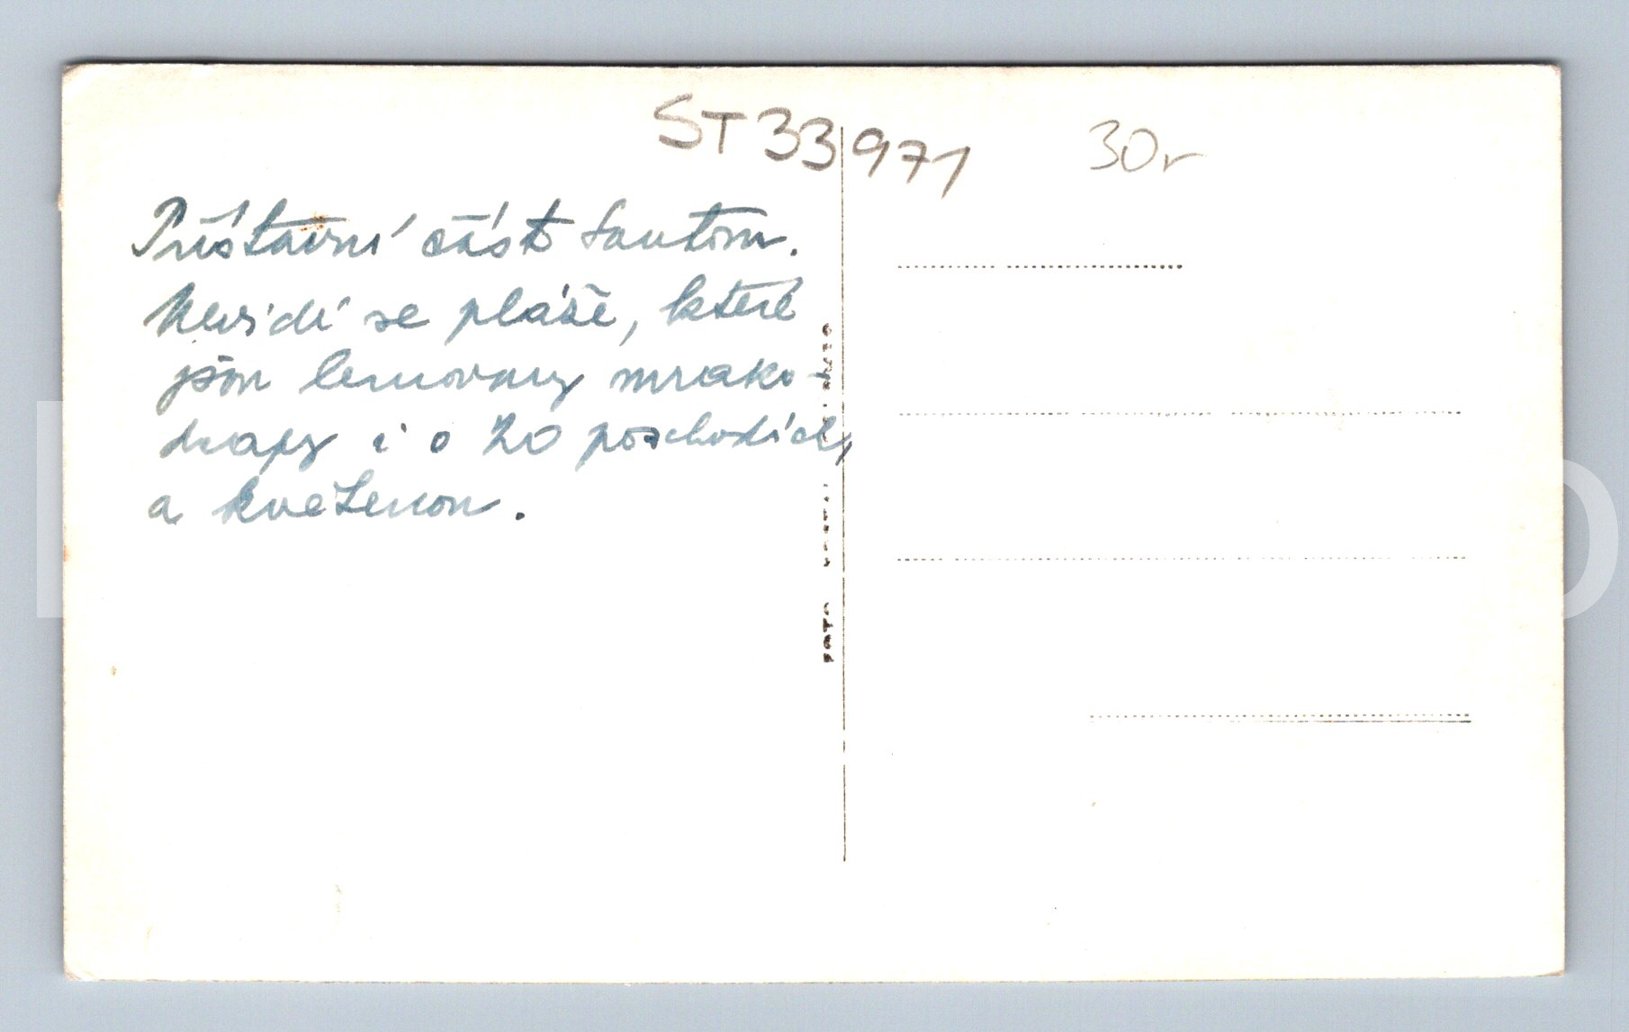 ST33971
30r
Přístavní část Santosu.
Nevidí se pláže, které
jsou lemovany mrako-
drapy i o 20 poschodích,
a květenou.
FOTO